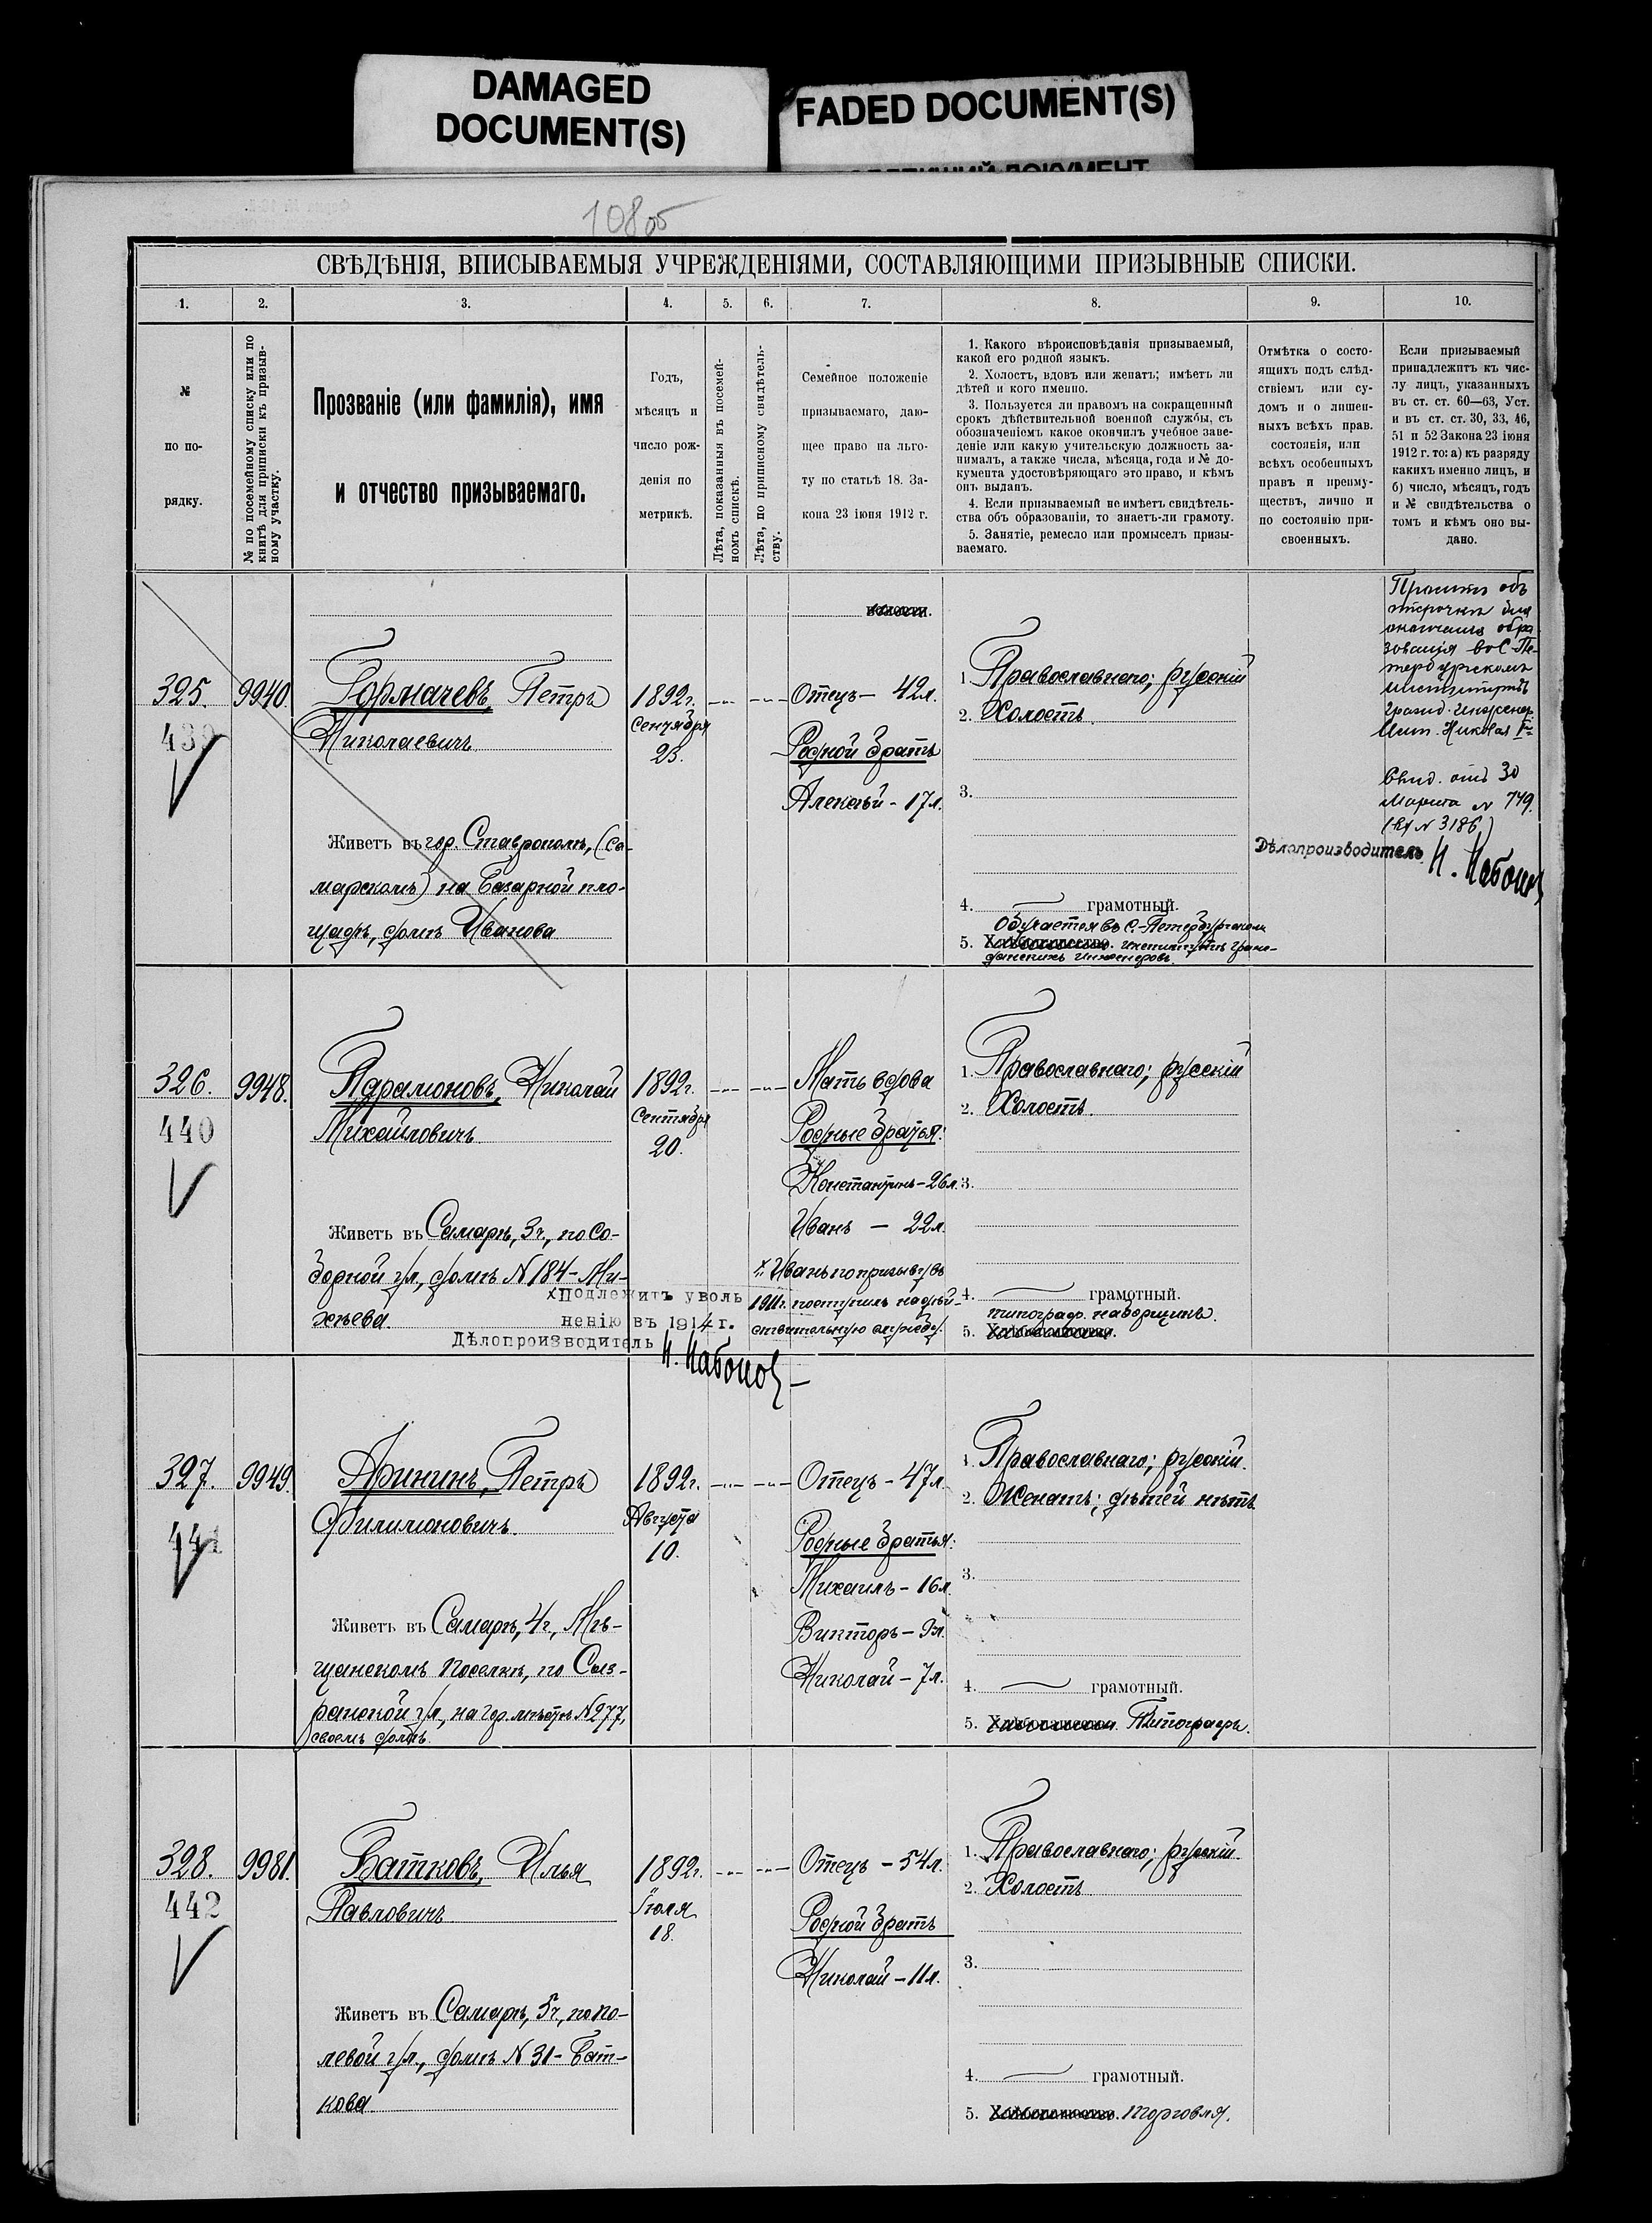 DAMAGED
DOCUMENT(S)
FADED DOCUMENT(S)
108 об
СВѢДѢНІЯ, ВПИСЫВАЕМЫЯ УЧРЕЖДЕНІЯМИ, СОСТАВЛЯЮЩИМИ ПРИЗЫВНЫЕ СПИСКИ.
1. 2. 3. 4. 5. 6. 7. 8. 9. 10.
№
по по-
рядку.
№ по посемейному списку или по
книгѣ для приписки къ призыв-
ному участку.
Прозваніе (или фамилія), имя
и отчество призываемаго.
Годъ,
мѣсяцъ и
число рож-
денія по
метрикѣ.
Лѣта, показанныя въ посемей-
номъ спискѣ.
Лѣта, по приписному свидѣтель-
ству.
Семейное положеніе
призываемаго, даю-
щее право на льго-
ту по статьѣ 18. За-
кона 23 іюня 1912 г.
1. Какого вѣроисповѣданія призываемый,
какой его родной языкъ.
2. Холостъ, вдовъ или женатъ; имѣетъ ли
дѣтей и кого именно.
3. Пользуется ли правомъ на сокращенный
срокъ дѣйствительной военной службы, съ
обозначеніемъ какое окончилъ учебное заве-
деніе или какую учительскую должность за-
нималъ, а также числа, мѣсяца, года и № до-
кумента удостовѣряющаго это право, и кѣмъ
онъ выданъ.
4. Если призываемый не имѣетъ свидѣтель-
ства объ образованіи, то знаетъ-ли грамоту.
5. Занятіе, ремесло или промыселъ призы-
ваемаго.
Отмѣтка о состо-
ящихъ подъ слѣд-
ствіемъ или су-
домъ и о лишен-
ныхъ всѣхъ прав.
состоянія, или
всѣхъ особенныхъ
правъ и преиму-
ществъ, лично и
по состоянію при-
своенныхъ.
Если призываемый
принадлежитъ къ чис-
лу лицъ, указанныхъ
въ ст. ст. 60—63, Уст.
и въ ст. ст. 30, 33, 46,
51 и 52 Закона 23 іюня
1912 г. то: а) къ разряду
какихъ именно лицъ, и
б) число, мѣсяцъ, годъ
и № свидѣтельства о
томъ и кѣмъ оно вы-
дано.
325.
439
9940.
Гормачевъ, Петръ
Николаевичъ
Живетъ въ гор. Ставрополѣ, (Са-
марскомъ) на Базарной пло-
щади, домъ Иванова
1892г.
Сентября
23.
волости.
Отецъ — 42л.
Родной братъ
Алексѣй - 17л.
1. Православнаго; русскій
2. Холостъ.
3.
4. грамотный.
Обучается въ С.-Петербургскомъ
5. Хлѣбопашество. институтѣ граж-
данскихъ инженеровъ.
Проситъ объ
отсрочкѣ для
окончанія обра-
зованія въ С-Пе-
тербургскомъ
институтѣ
гражд. инженер.
Имп. Николая I-
Свид. отъ 30
Марта № 749.
(вх № 3186)
Дѣлопроизводитель
326.
440
9948.
Парамоновъ, Николай
Михайловичъ
Живетъ въ Самарѣ, 3ч., по Со-
борной ул., домъ №184 - Ми-
хѣева.
хПодлежитъ уволь
ненію въ 1914 г.
Дѣлопроизводитель
1892г.
Сентября
20.
Мать вдова
Родные братья:
Константинъ - 26л.
Иванъ — 22л.
х. Иванъ по призыву въ
1911г. поступилъ на дѣй-
ствительную службу.
1. Православнаго; русскій
2. Холостъ.
3.
4. грамотный.
типограф. наборщикъ.
5. Хлѣбопашество.
327.
441
9949.
Аринин, Петръ
Филимоновичъ.
Живетъ въ Самарѣ, 4ч., Мѣ-
щанскомъ поселкѣ, по Сыз-
ранской ул., на гор. мѣстѣ №277,
своемъ домѣ.
1892г.
Августа
10.
Отецъ - 47л.
Родные братья:
Михаилъ - 16л.
Викторъ - 9л.
Николай - 7л.
1. Православнаго; русскій.
2. Женатъ; дѣтей нѣтъ
3.
4. грамотный.
5. Хлѣбопашество. Типографъ.
328.
442
9981.
Батковъ, Илья
Павловичъ
Живетъ въ Самарѣ, 5ч., по По-
левой ул., домъ № 31 - Бат-
кова
1892г.
Іюля
18.
Отецъ - 54л.
Родной братъ
Николай - 11л.
1. Православнаго; русскій.
2. Холостъ
3.
4. грамотный.
5. Хлѣбопашество. торговля.